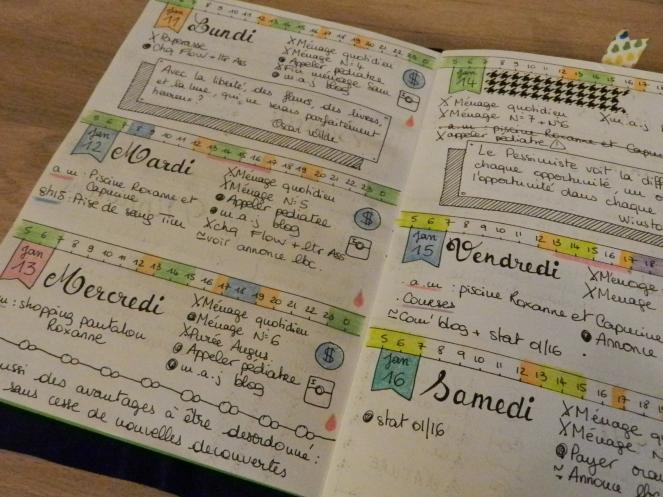 7 8 9 10 11 12 13 14 15 16 17 18 19 20 21 22 23 0
Jan 11
Lundi
X Paperasse
Chq Flow + ltr Ass
X Ménage quotidien
X Ménage N°4
Appeler pédiatre
X Fin ménage
m.a.j blog
$
Avec la liberté, des fleurs, des livres,
et la lune, qui ne serait parfaitement
heureux ?
Oscar Wilde
5 6 7 8 9 10 11 12 13 14 15 16 17 18 19 20 21 22 23 0
Jan 12
Mardi
a.m : Piscine Roxanne et
Capucine
8h15 : Prise de sang Tim
X Ménage quotidien
X Ménage N°5
Appeler pédiatre
m.a.j blog
X chq Flow + ltr Ass
~ voir annonce lbc.
$
5 6 7 8 9 10 11 12 13 14 15 16 17 18 19 20 21 22 23 0
Jan 13
Mercredi
: shopping pantalon
Roxanne
X Ménage quotidien
Ménage N°6
X Purée Augus.
Appeler pédiatre
m.a.j blog
$
aussi des avantages à être désordonné :
sans cesse de nouvelles découvertes
5 6 7 8 9 10 11 12 13 14 15 16 17
Jan 14
X Ménage quotidien
X Ménage N°7 + N°6
X m.a.j
a.m : piscine Roxanne et Capucine
X appeler pédiatre
Le Pessimiste voit la diff
chaque opportunité, un o
l'opportunité dans chaque
Winsto
5 6 7 8 9 10 11 12 13 14 15 16 17 18
Jan 15
Vendredi
a.m : piscine Roxanne et Capucine
Courses
~ Com' blog + stat 01/16
X Ménage
X Ménage
Annonce
5 6 7 8 9 10 11 12 13 14 15 16 17 18
Jan 16
Samedi
stat 01/16
X Ménage q
X Ménage N
Payer
~ Annonce